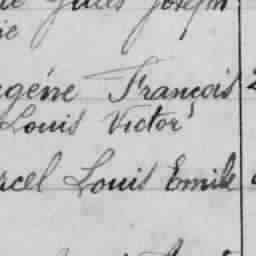 Jules Joseph
ugéne François
Louis Victor
rcel Louis Emile